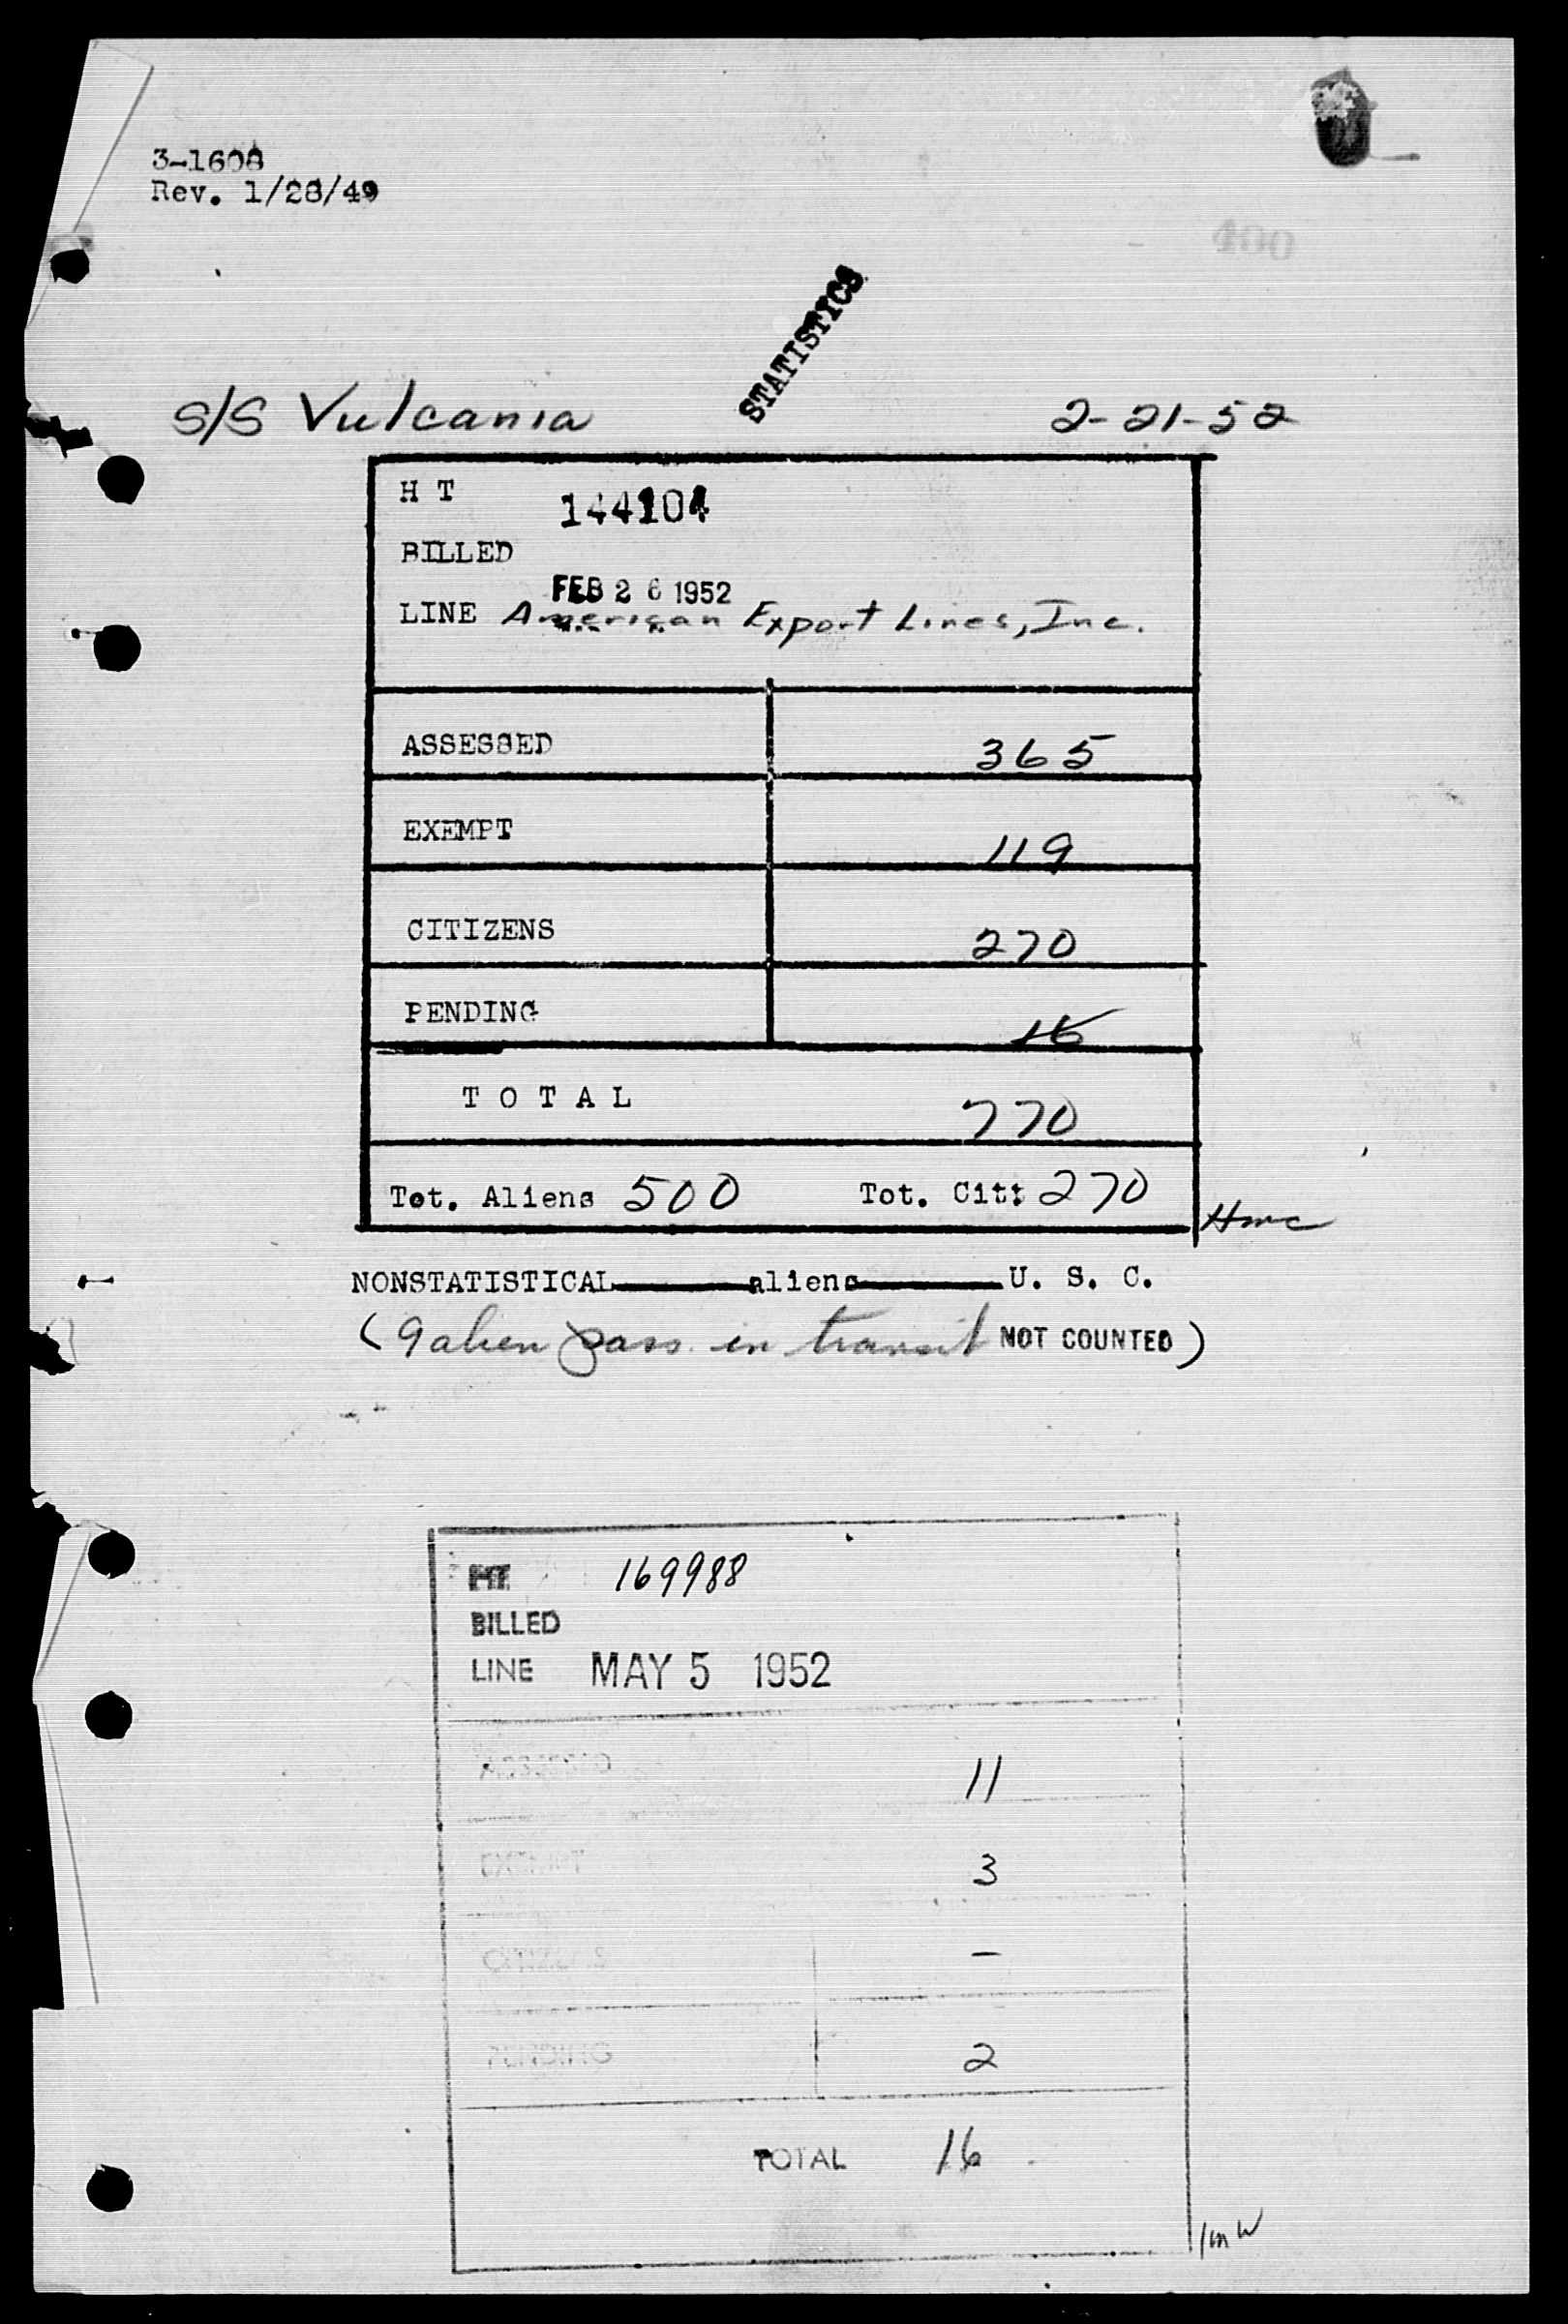 3-1608
Rev. 1/28/49
400
STATISTICS
S/S Vulcania 2-21-52
H T 144104
BILLED
FEB 26 1952
LINE American Export Lines, Inc.
ASSESSED 365
EXEMPT 119
CITIZENS 270
PENDING 16
T O T A L 770
Tot. Aliens 500 Tot. Cit: 270
Hmc
NONSTATISTICAL aliens U. S. C.
(9 alien pass. in transit NOT COUNTED)
HT 169988
BILLED
LINE MAY 5 1952
ASSESSED 11
EXEMPT 3
CITIZENS -
PENDING 2
TOTAL 16